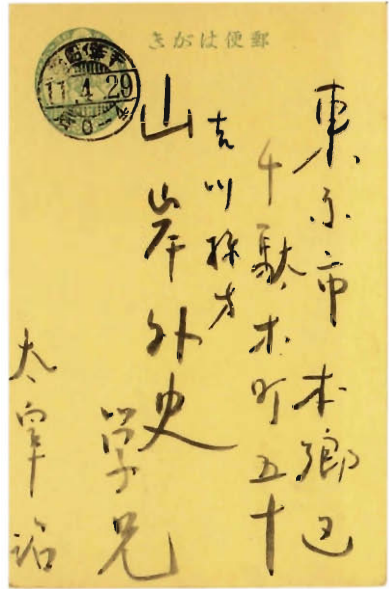 郵便はがき
11.4.29
東京市本郷区
千駄木町五十
吉川様方
山岸外史
学兄
太宰治